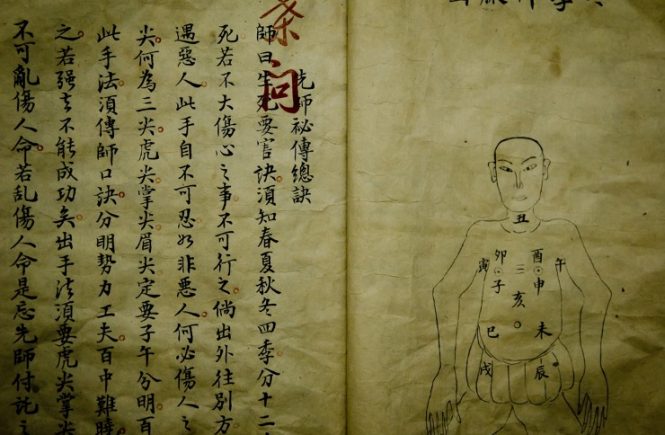 丑
酉 午
卯 寅
申
三
子
亥
未
巳
辰
戌
問
先師祕傳總訣
師曰生死要害訣須知春夏秋冬四季分十二
死若不大傷心之事不可行之倘出外往別方
遇惡人此手自不可忍如非惡人何必傷人之
尖何為三尖虎尖掌尖眉尖定要子午分明百
此手法須傳師口訣分明勢力工夫百中難曉
之若强不能成功矣出手法須要虎尖掌尖
不可亂傷人命若乱傷人命是忘先師付託之